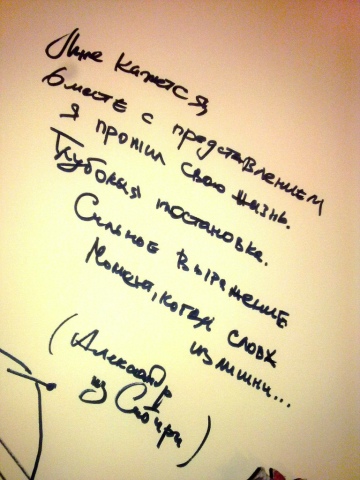 Мне кажется,
вместе с представлением
я прожил свою жизнь.
Глубокая постановка.
Сильное выражение
Момент, когда слова
излишни...
(Александр
из Сибири)